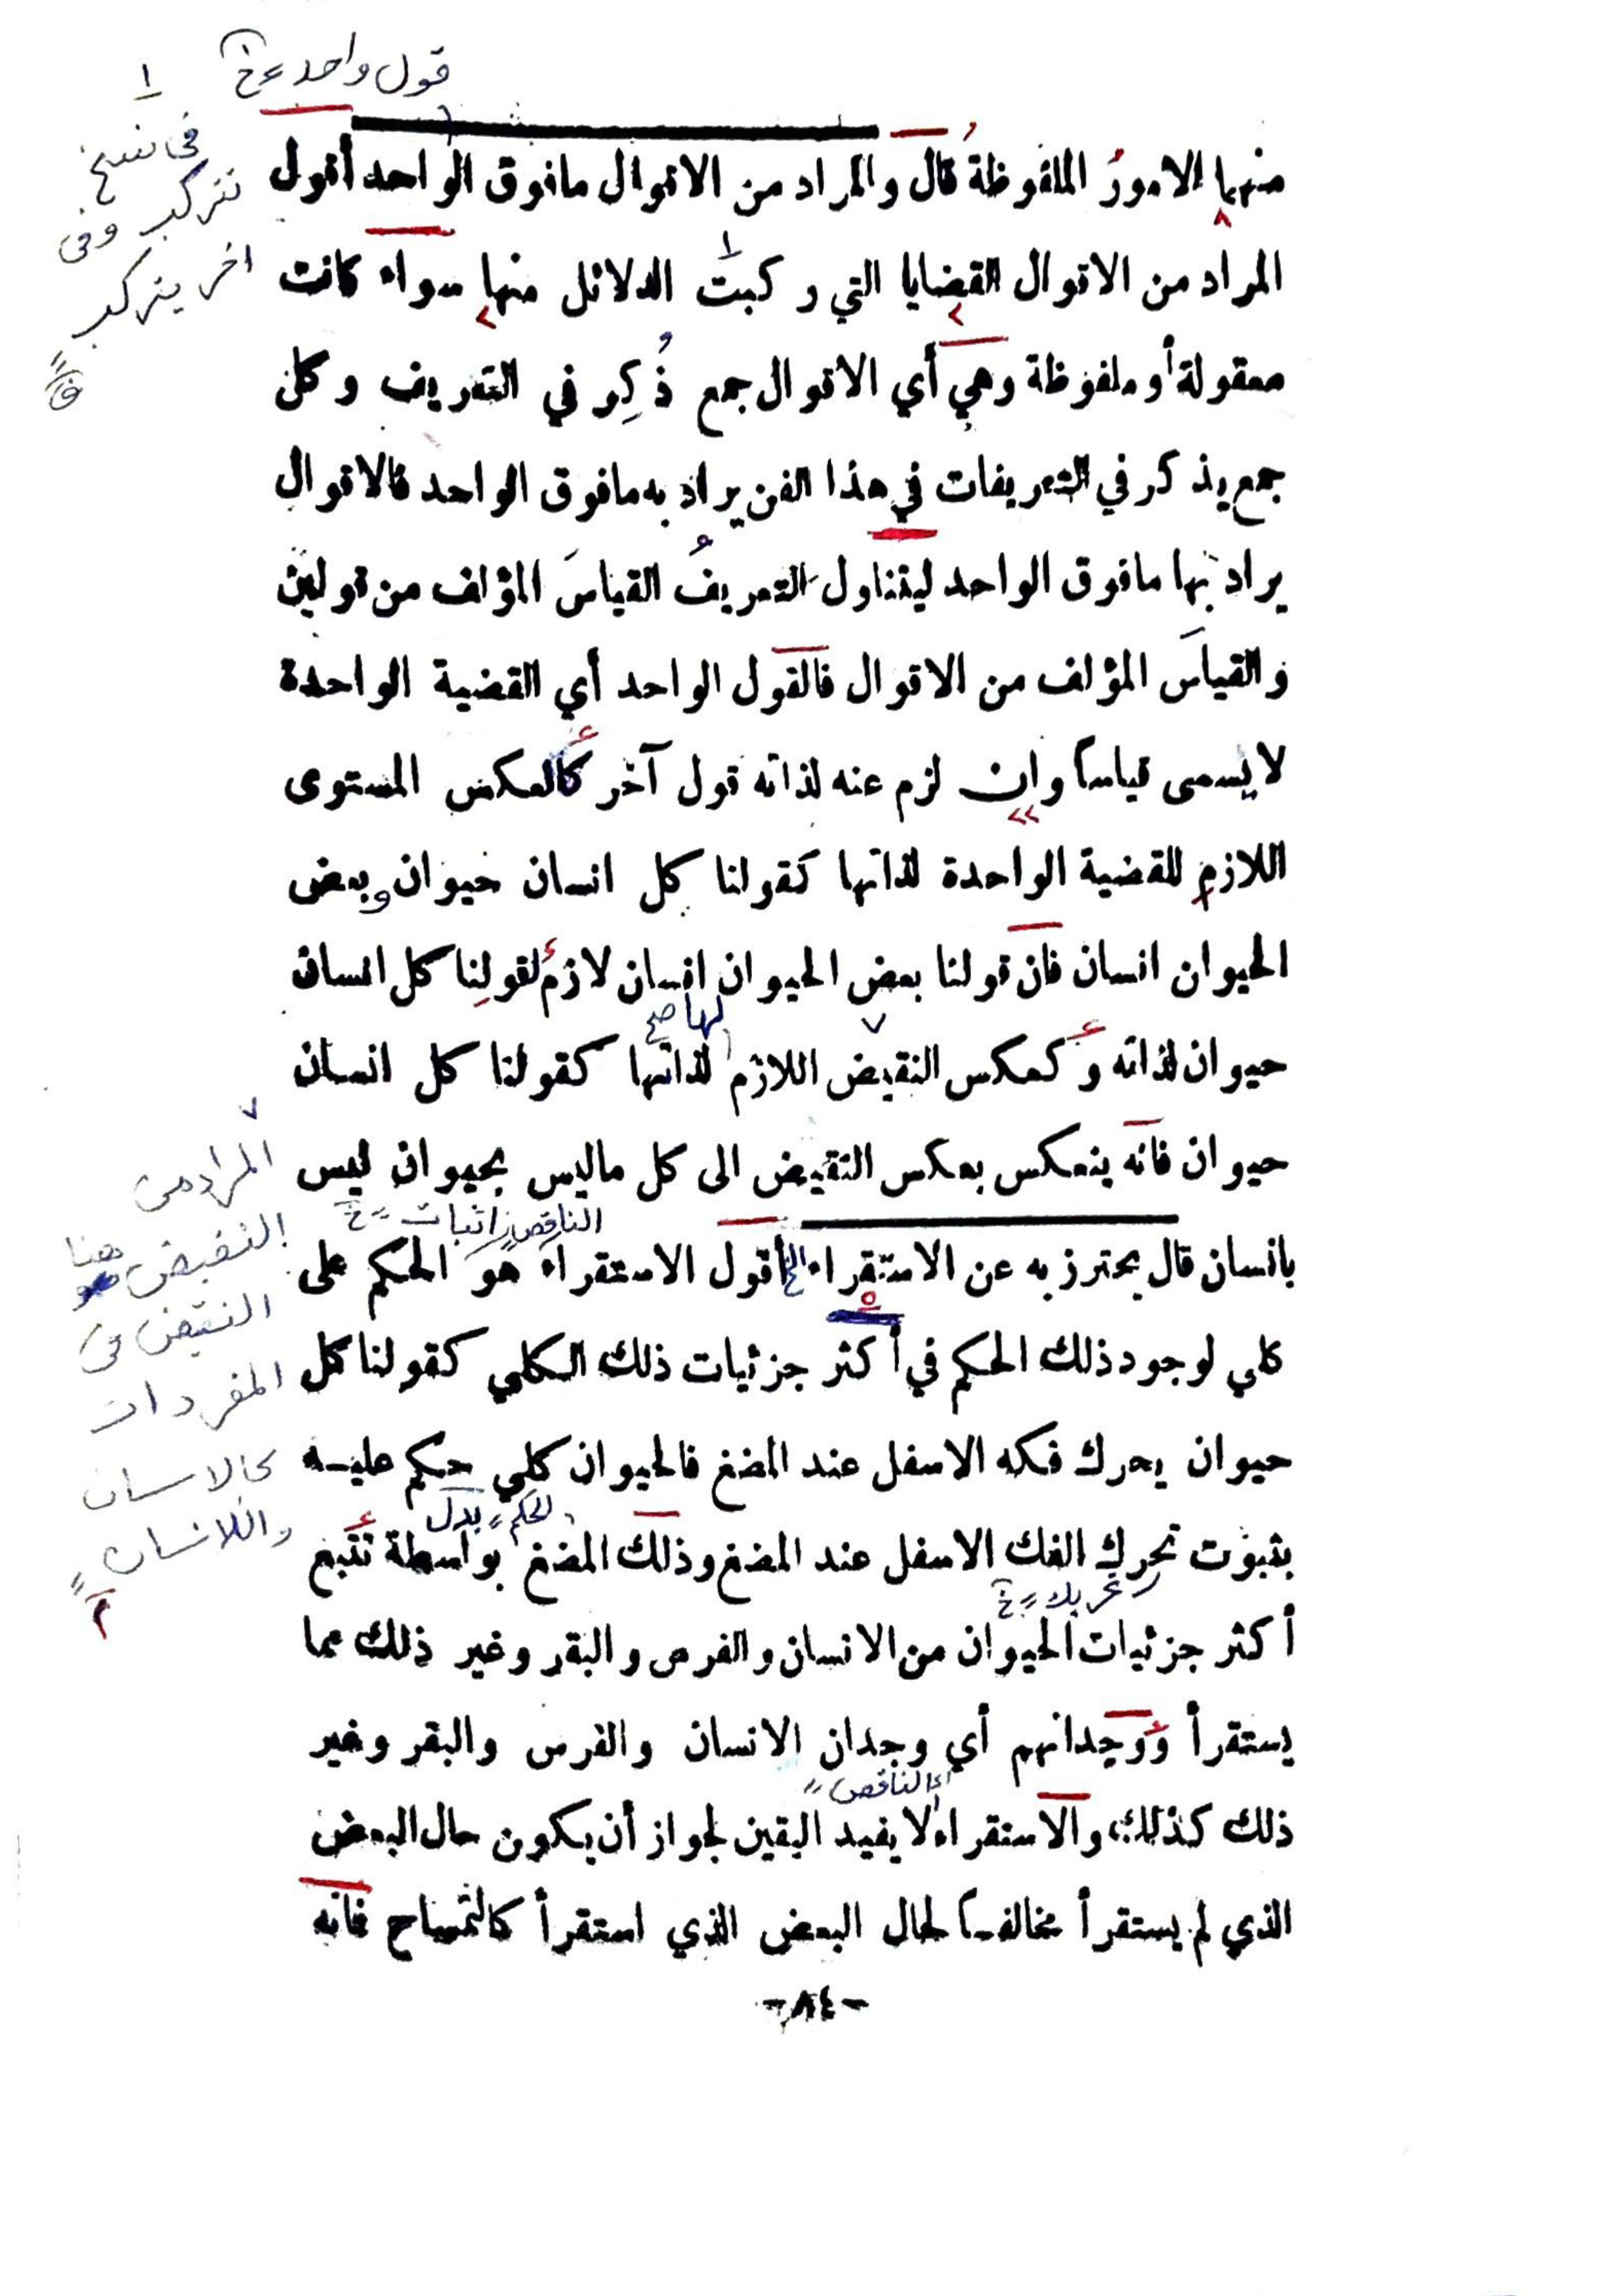 قول واحد خ
١
في نسخ
تتركب وفي
اخر يتركب
منهما الامورُ الملفوظةُ قال والمراد من الاقوال مافوق الواحد أقول
المراد من الاقوال القضايا التي ركبت الدلائل منها سواء كانت
معقولة أو ملفوظة وهي أي الاقوال جمع ذُكِر في التعريف وكل
جمع يذكر في التعريفات في هذا الفن يراد به مافوق الواحد فالاقوال
يراد بها مافوق الواحد ليتناول التعريفُ القياسَ المؤلف من قولين
والقياسَ المؤلف من الاقوال فالقول الواحد أي القضية الواحدة
لا يسمى قياساً وان لزم عنه لذاته قول آخر كالعكس المستوى
اللازم للقضية الواحدة لذاتها كقولنا كل انسان حيوان وبعض
الحيوان انسان فان قولنا بعض الحيوان انسان لازمٌ لقولنا كل انسان
لها صح
حيوان لذاته و كعكس النقيض اللازم لذاتها كقولنا كل انسان
حيوان فانه ينعكس بعكس النقيض الى كل ماليس بحيوان ليس
الناقص اثبات خ
بانسان قال يحترز به عن الاستقراء الخ أقول الاستقراء هو الحكم على
كلي لوجود ذلك الحكم في أكثر جزئيات ذلك الكلي كقولنا كل
حيوان يحرك فكه الاسفل عند المضغ فالحيوان كلي حكم عليه
الحكم بدل
بثبوت تحرك الفك الاسفل عند المضغ وذلك المضغ بواسطة تتبع
تحريك خ
أكثر جزئيات الحيوان من الانسان والفرس والبقر وغير ذلك مما
يستقرأ ووجدانهم أي وجدان الانسان والفرس والبقر وغير
الناقص
ذلك كذلك والاستقراء لا يفيد اليقين لجواز أن يكون حال البعض
الذي لم يستقرأ مخالفاً لحال البعض الذي استقرأ كالتمساح فانه
المراد من
النقيض هنا
النقيض في
المفردات
كالانسان
واللاانسان
-٨٤-